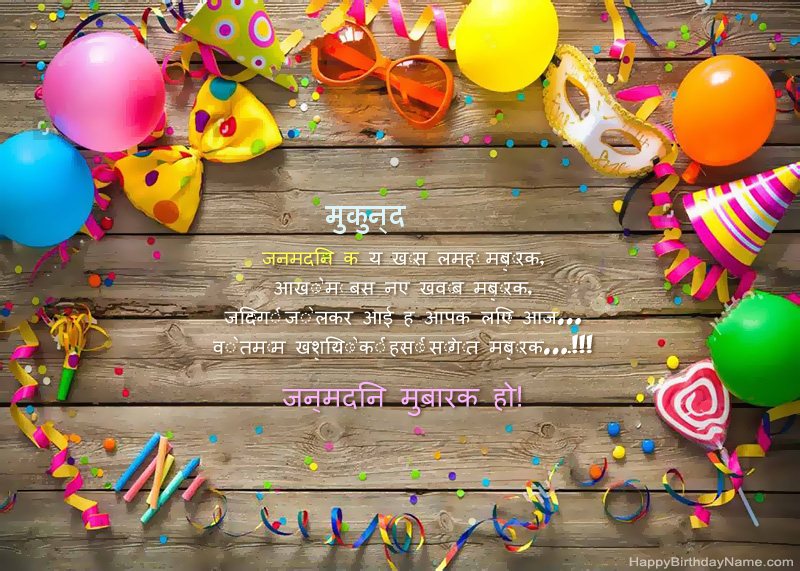 मुकुन्द
जन्मदिन का ये ख़ास लम्हा मुबारक,
आँखों में बसे नए ख्वाब मुबारक,
जिंदगी जो लेकर आई है आपके लिए आज...
वो तमाम खुशियों की हंसीं सौगात मुबारक...!!!
जन्मदिन मुबारक हो!
HappyBirthdayName.com